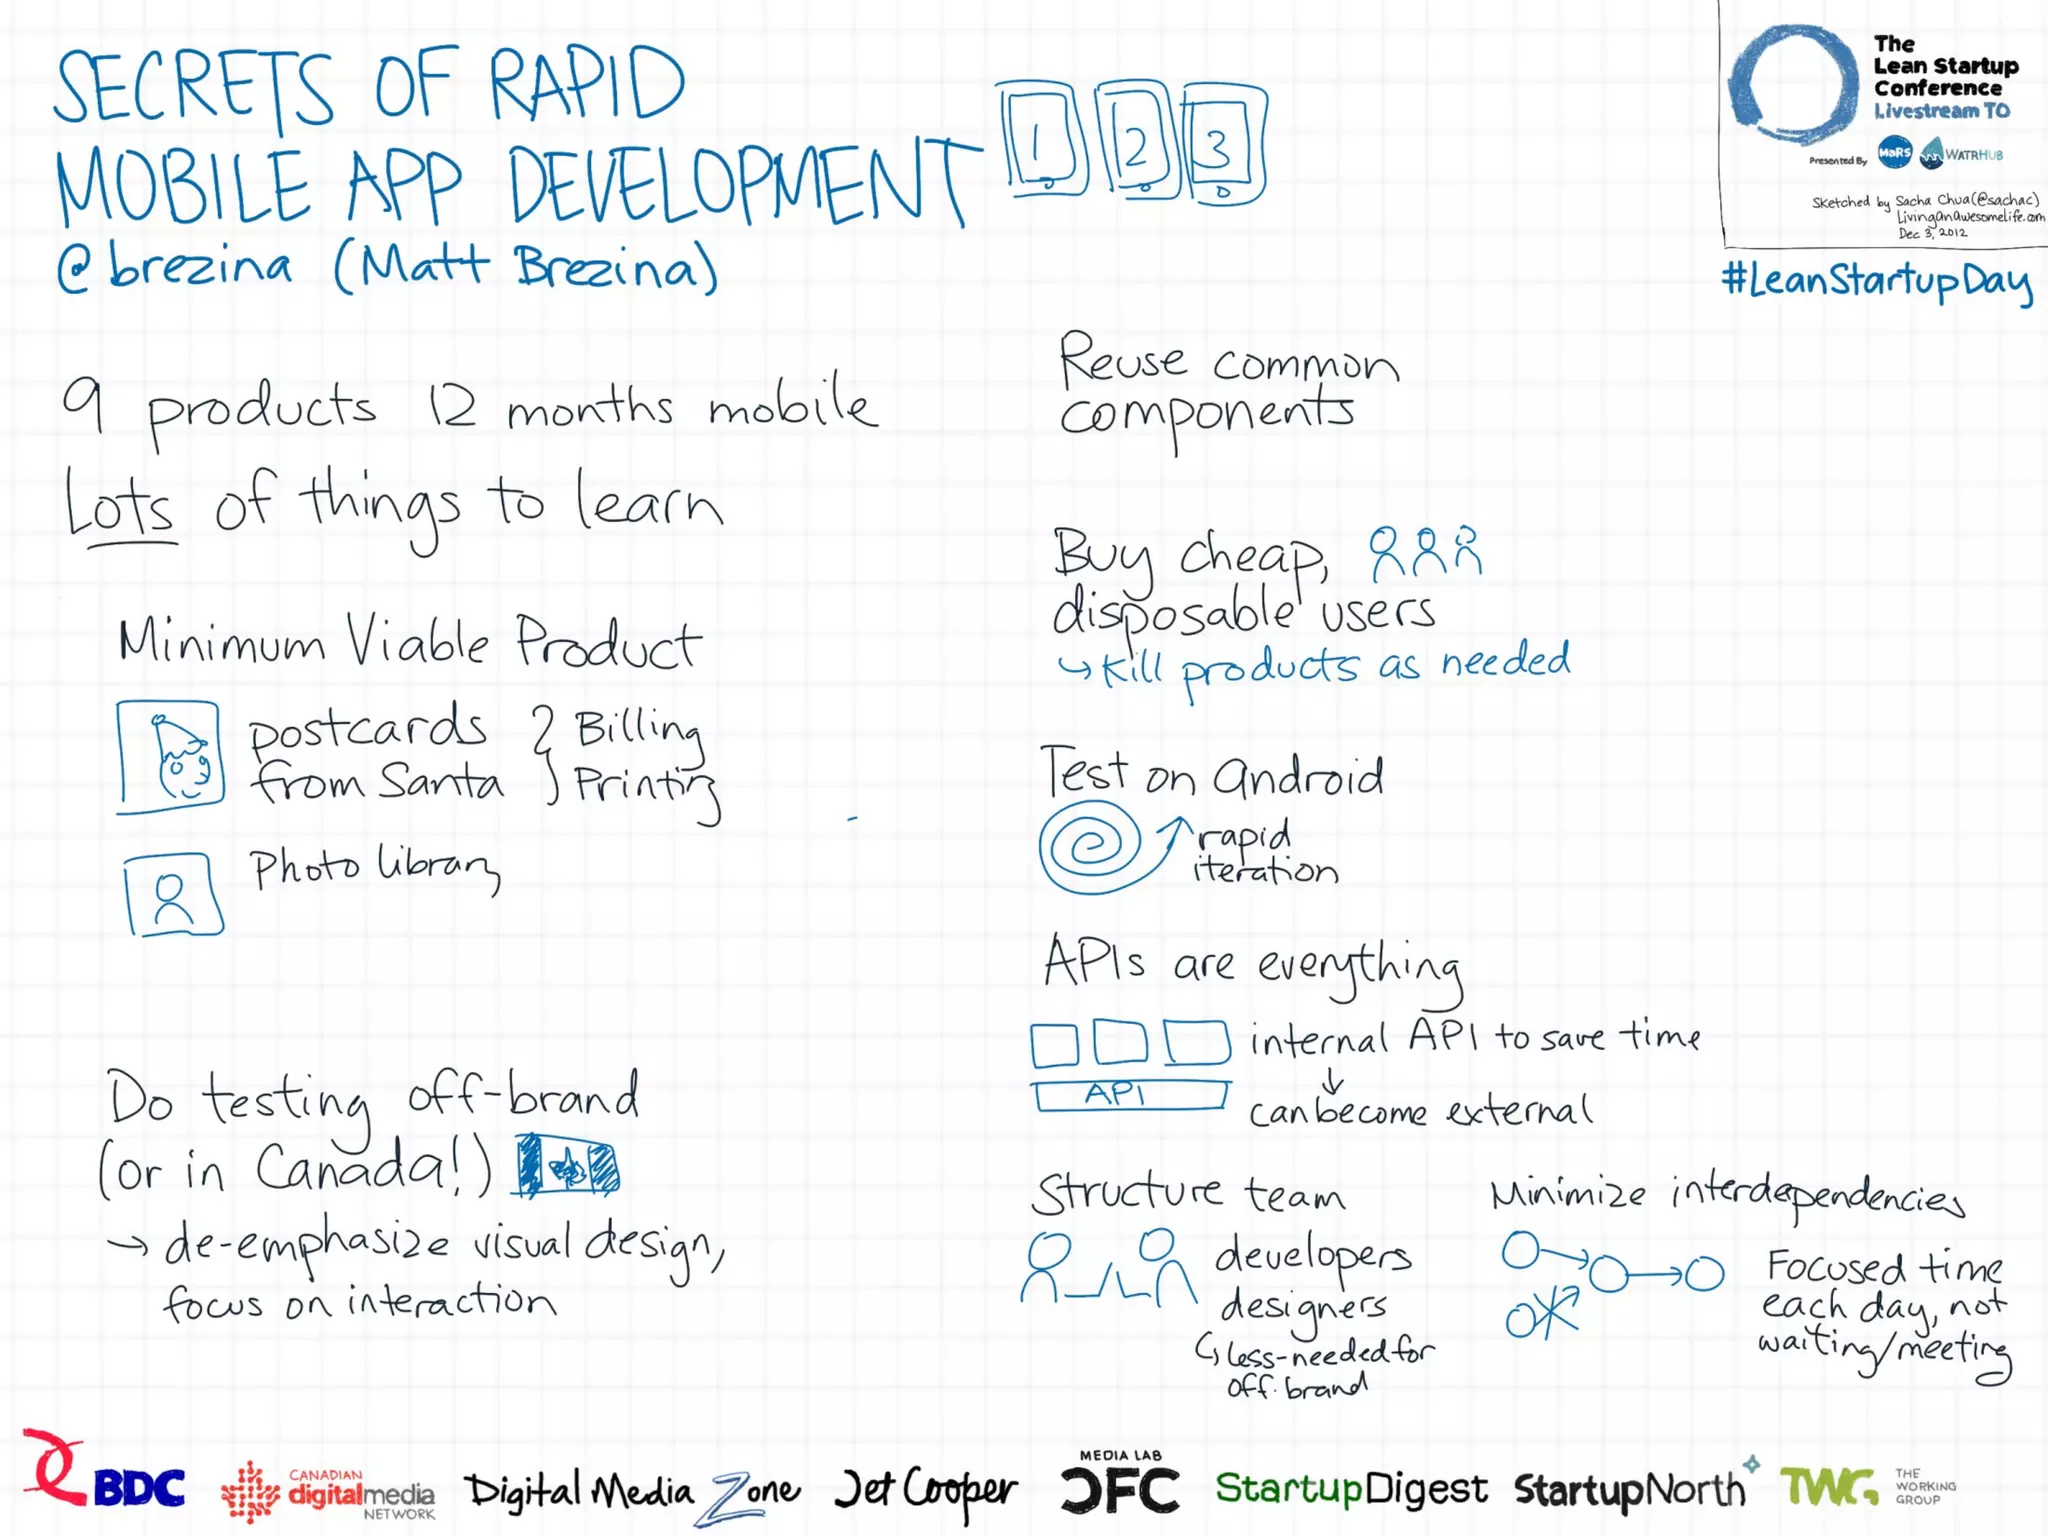 SECRETS OF RAPID
MOBILE APP DEVELOPMENT
1 2 3
@brezina (Matt Brezina)
The
Lean Startup
Conference
Livestream TO
Presented By MaRS WATRHUB
Sketched by Sacha Chua (@sachac)
LivingAnAwesomeLife.com
Dec 3, 2012
#LeanStartupDay
9 products 12 months mobile
Lots of things to learn
Minimum Viable Product
postcards } Billing
from Santa } Printing
Photo library
Do testing off-brand
(or in Canada!)
→ de-emphasize visual design,
focus on interaction
Reuse common
components
Buy cheap,
disposable users
↪ Kill products as needed
Test on Android
rapid
iteration
APIs are everything
internal API to save time
↓
API
can become external
Structure team
developers
designers
↪ less-needed for
off-brand
Minimize interdependencies
Focused time
each day, not
waiting/meeting
BDC
CANADIAN
digitalmedia
NETWORK
Digital Media Zone
Jet Cooper
MEDIA LAB
CFC
StartupDigest
StartupNorth
TWG
THE
WORKING
GROUP